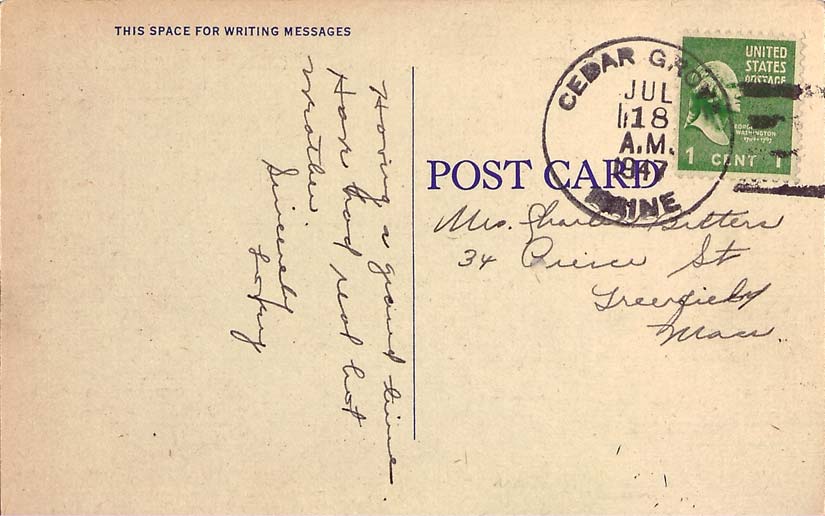 THIS SPACE FOR WRITING MESSAGES
Having a grand time.
Have had real hot
weather
Sincerely
POST CARD
CEDAR GROVE
JUL
18
A.M.
1947
MAINE
UNITED
STATES
POSTAGE
GEORGE
WASHINGTON
1 CENT 1
Mrs. Charles Bitters
34 Pierce St
Greenfield
Mass